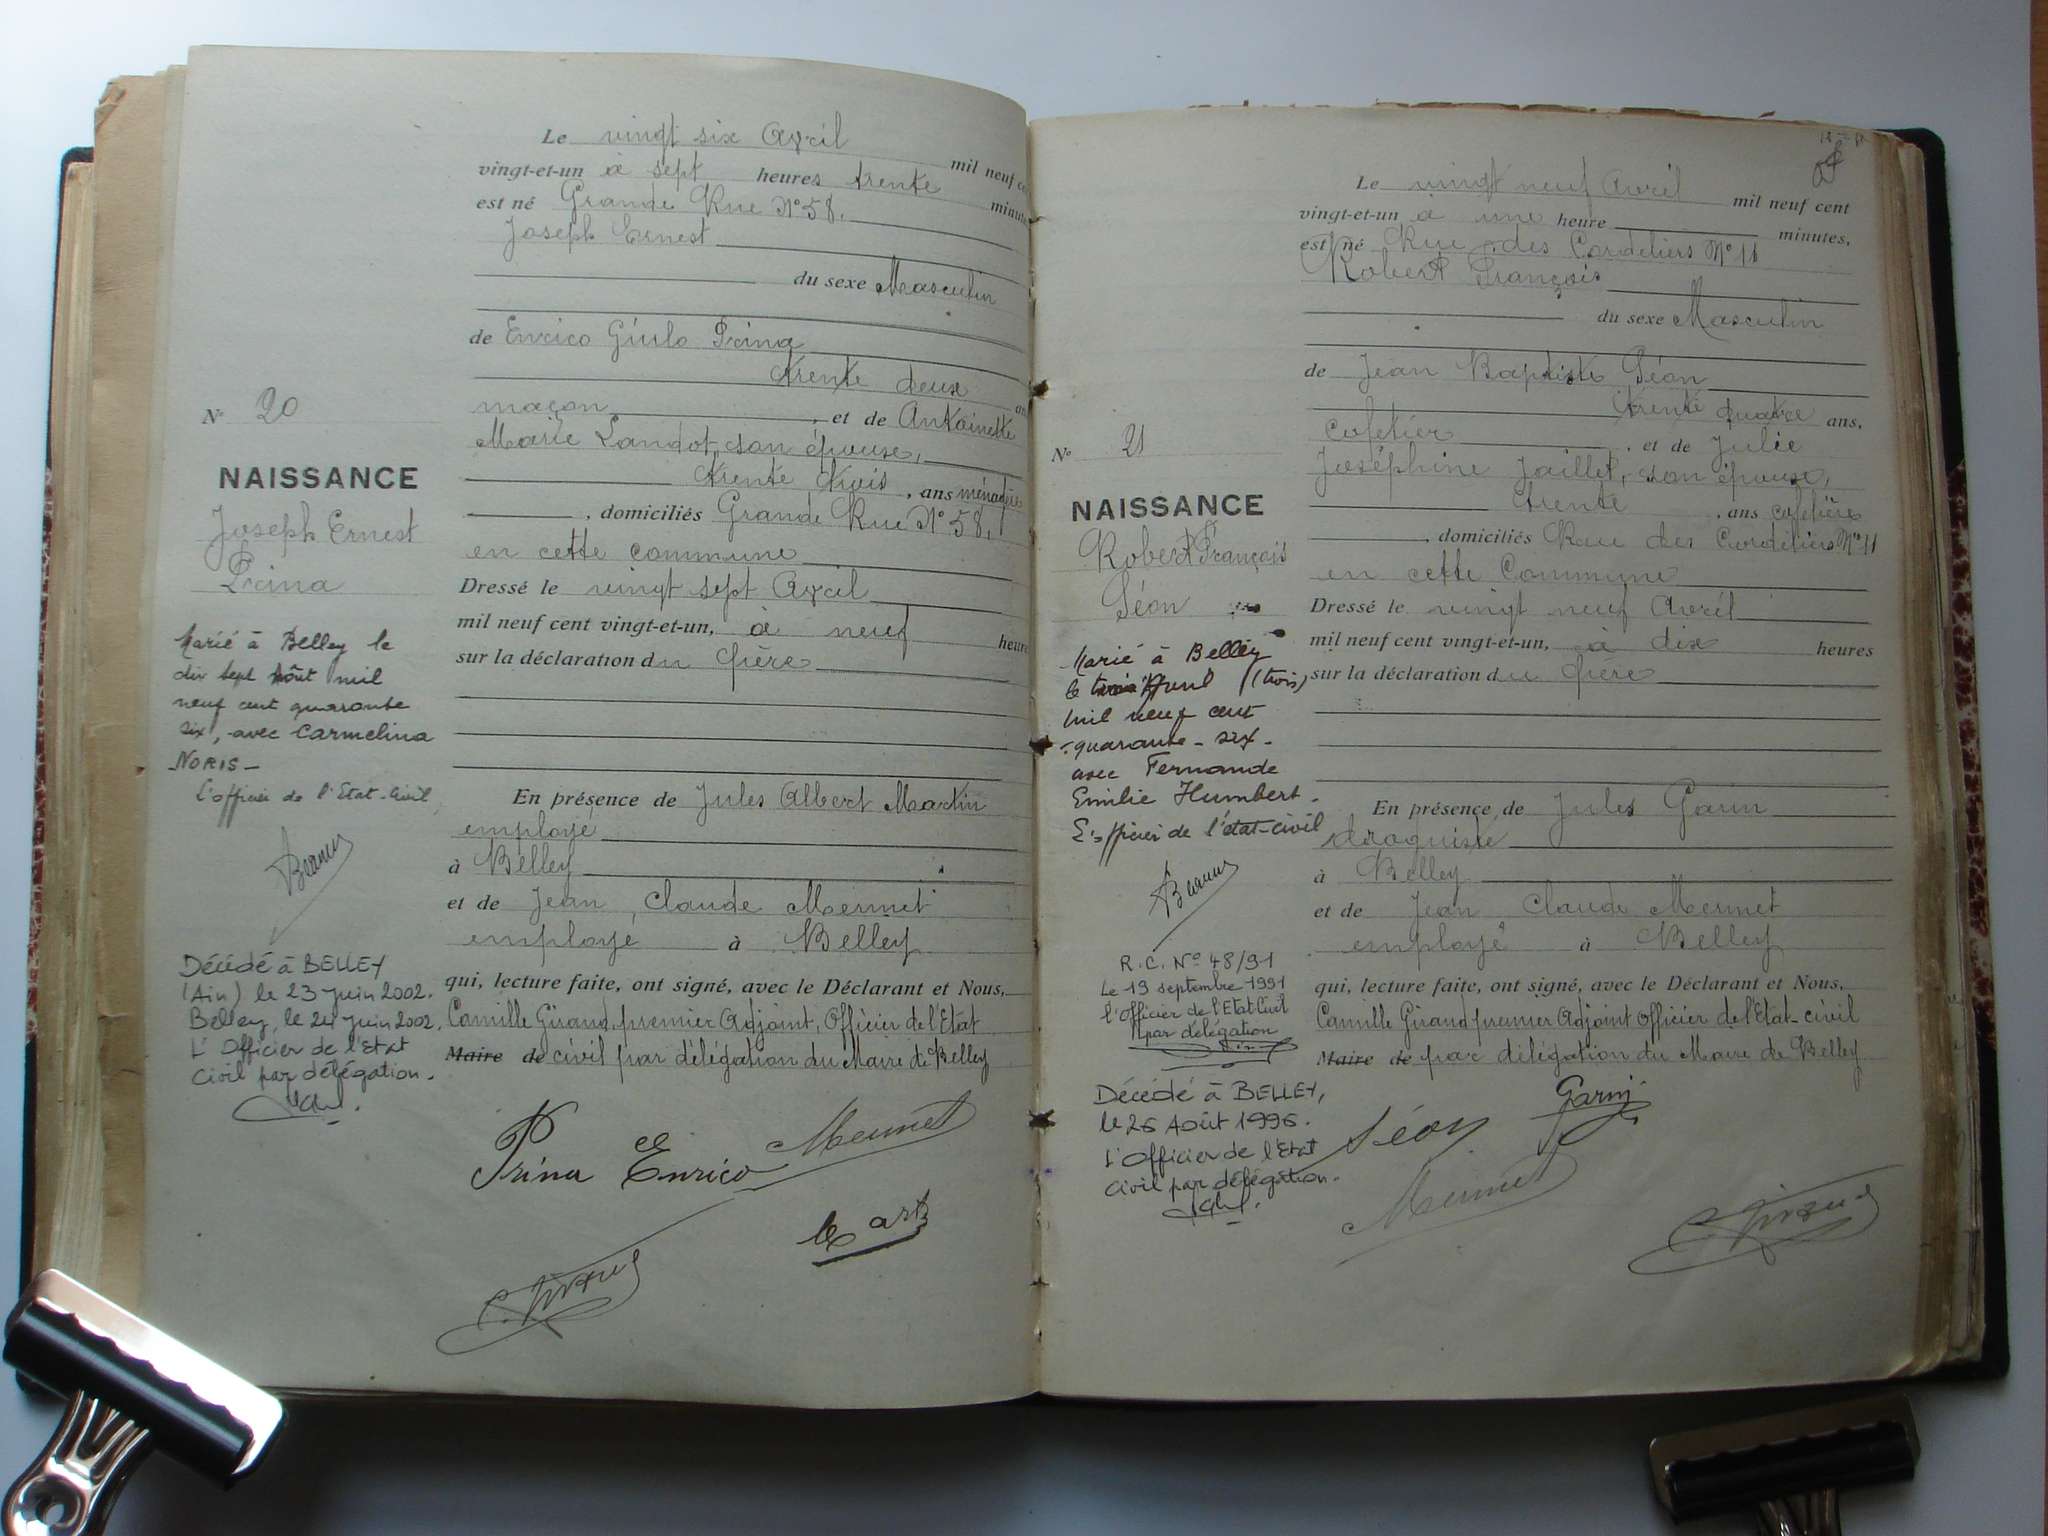 Le vingt six Avril mil neuf ce
vingt-et-un à sept heures trente minutes
est né Grande Rue N° 58.
Joseph Ernest
du sexe Masculin
de Enrico Giulo Prina
trente deux an
maçon, et de Antoinette
Marie Landot, son épouse,
trente trois, ans ménagère
, domiciliés Grande Rue N° 58,
en cette commune
Dressé le vingt sept Avril
mil neuf cent vingt-et-un, à neuf heures
sur la déclaration du Père
En présence de Jules Albert Martin
employé
à Belley
et de Jean Claude Mermet
employé à Belley
qui, lecture faite, ont signé, avec le Déclarant et Nous,
Camille Giraud, premier Adjoint, Officier de l'Etat
Maire de civil par délégation du Maire de Belley
Prina Enrico Mermet
Mart
C. Giraud
N° 20
NAISSANCE
Joseph Ernest
Prina
Marié à Belley le
dix sept Août mil
neuf cent quarante
six, avec Carmelina
NORIS -
L'officier de l'Etat-Civil
Décédé à BELLEY
(Ain) le 23 Juin 2002.
Belley, le 24 Juin 2002.
L'Officier de l'Etat
Civil par délégation.
Le vingt neuf Avril mil neuf cent
vingt-et-un à une heure minutes,
est né Rue des Cordeliers N° 11
Robert François
du sexe Masculin
de Jean Baptiste Séon
trente quatre ans,
cafetier, et de Julie
Joséphine Jaillet, son épouse,
trente, ans cafetière
, domiciliés Rue des Cordeliers N° 11
en cette Commune
Dressé le vingt neuf Avril
mil neuf cent vingt-et-un, à dix heures
sur la déclaration du Père
En présence de Jules Garin
droguiste
à Belley
et de Jean Claude Mermet
employé à Belley
qui, lecture faite, ont signé, avec le Déclarant et Nous,
Camille Giraud premier Adjoint Officier de l'Etat-civil
Maire de par délégation du Maire de Belley
Séon Garin
Mermet
C. Giraud
N° 21
NAISSANCE
Robert François
Séon
Marié à Belley
le trois Avril (trois)
mil neuf cent
quarante-six -
avec Fernande
Emilie Humbert.
L'officier de l'état-civil
R.C. N° 48/91
Le 19 septembre 1991
l'Officier de l'Etat Civil
par délégation
Décédé à BELLEY,
le 26 Août 1996.
L'Officier de l'Etat
Civil par délégation.